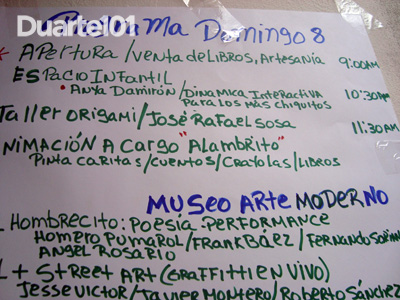 Duarte101
Programa Domingo 8
* APERTURA / VENTA de LIBROS, ARTESANÍA 9:00AM
ESPACIO INFANTIL
• ANYA DAMIRÓN / DINAMICA INTERACTIVA 10:30AM
PARA LOS MÁS CHIQUITOS
Taller ORIGAMI / JOSÉ RAFAEL SOSA 11:30AM
NIMACIÓN A CARGO "ALAMBRITO"
PINTA CARITAS / CUENTOS / CRAYOLAS / LIBROS
MUSEO ARTE MODERNO
L HOMBRECITO: POESÍA: PERFORMANCE
HOMERO PUMAROL / FRANK BÁEZ / FERNANDO
ANGEL ROSARIO
L + STREET ART (GRAFFITTI EN VIVO)
JESSE VICTOR / JAVIER MONTERO / ROBERTO SÁNCHEZ